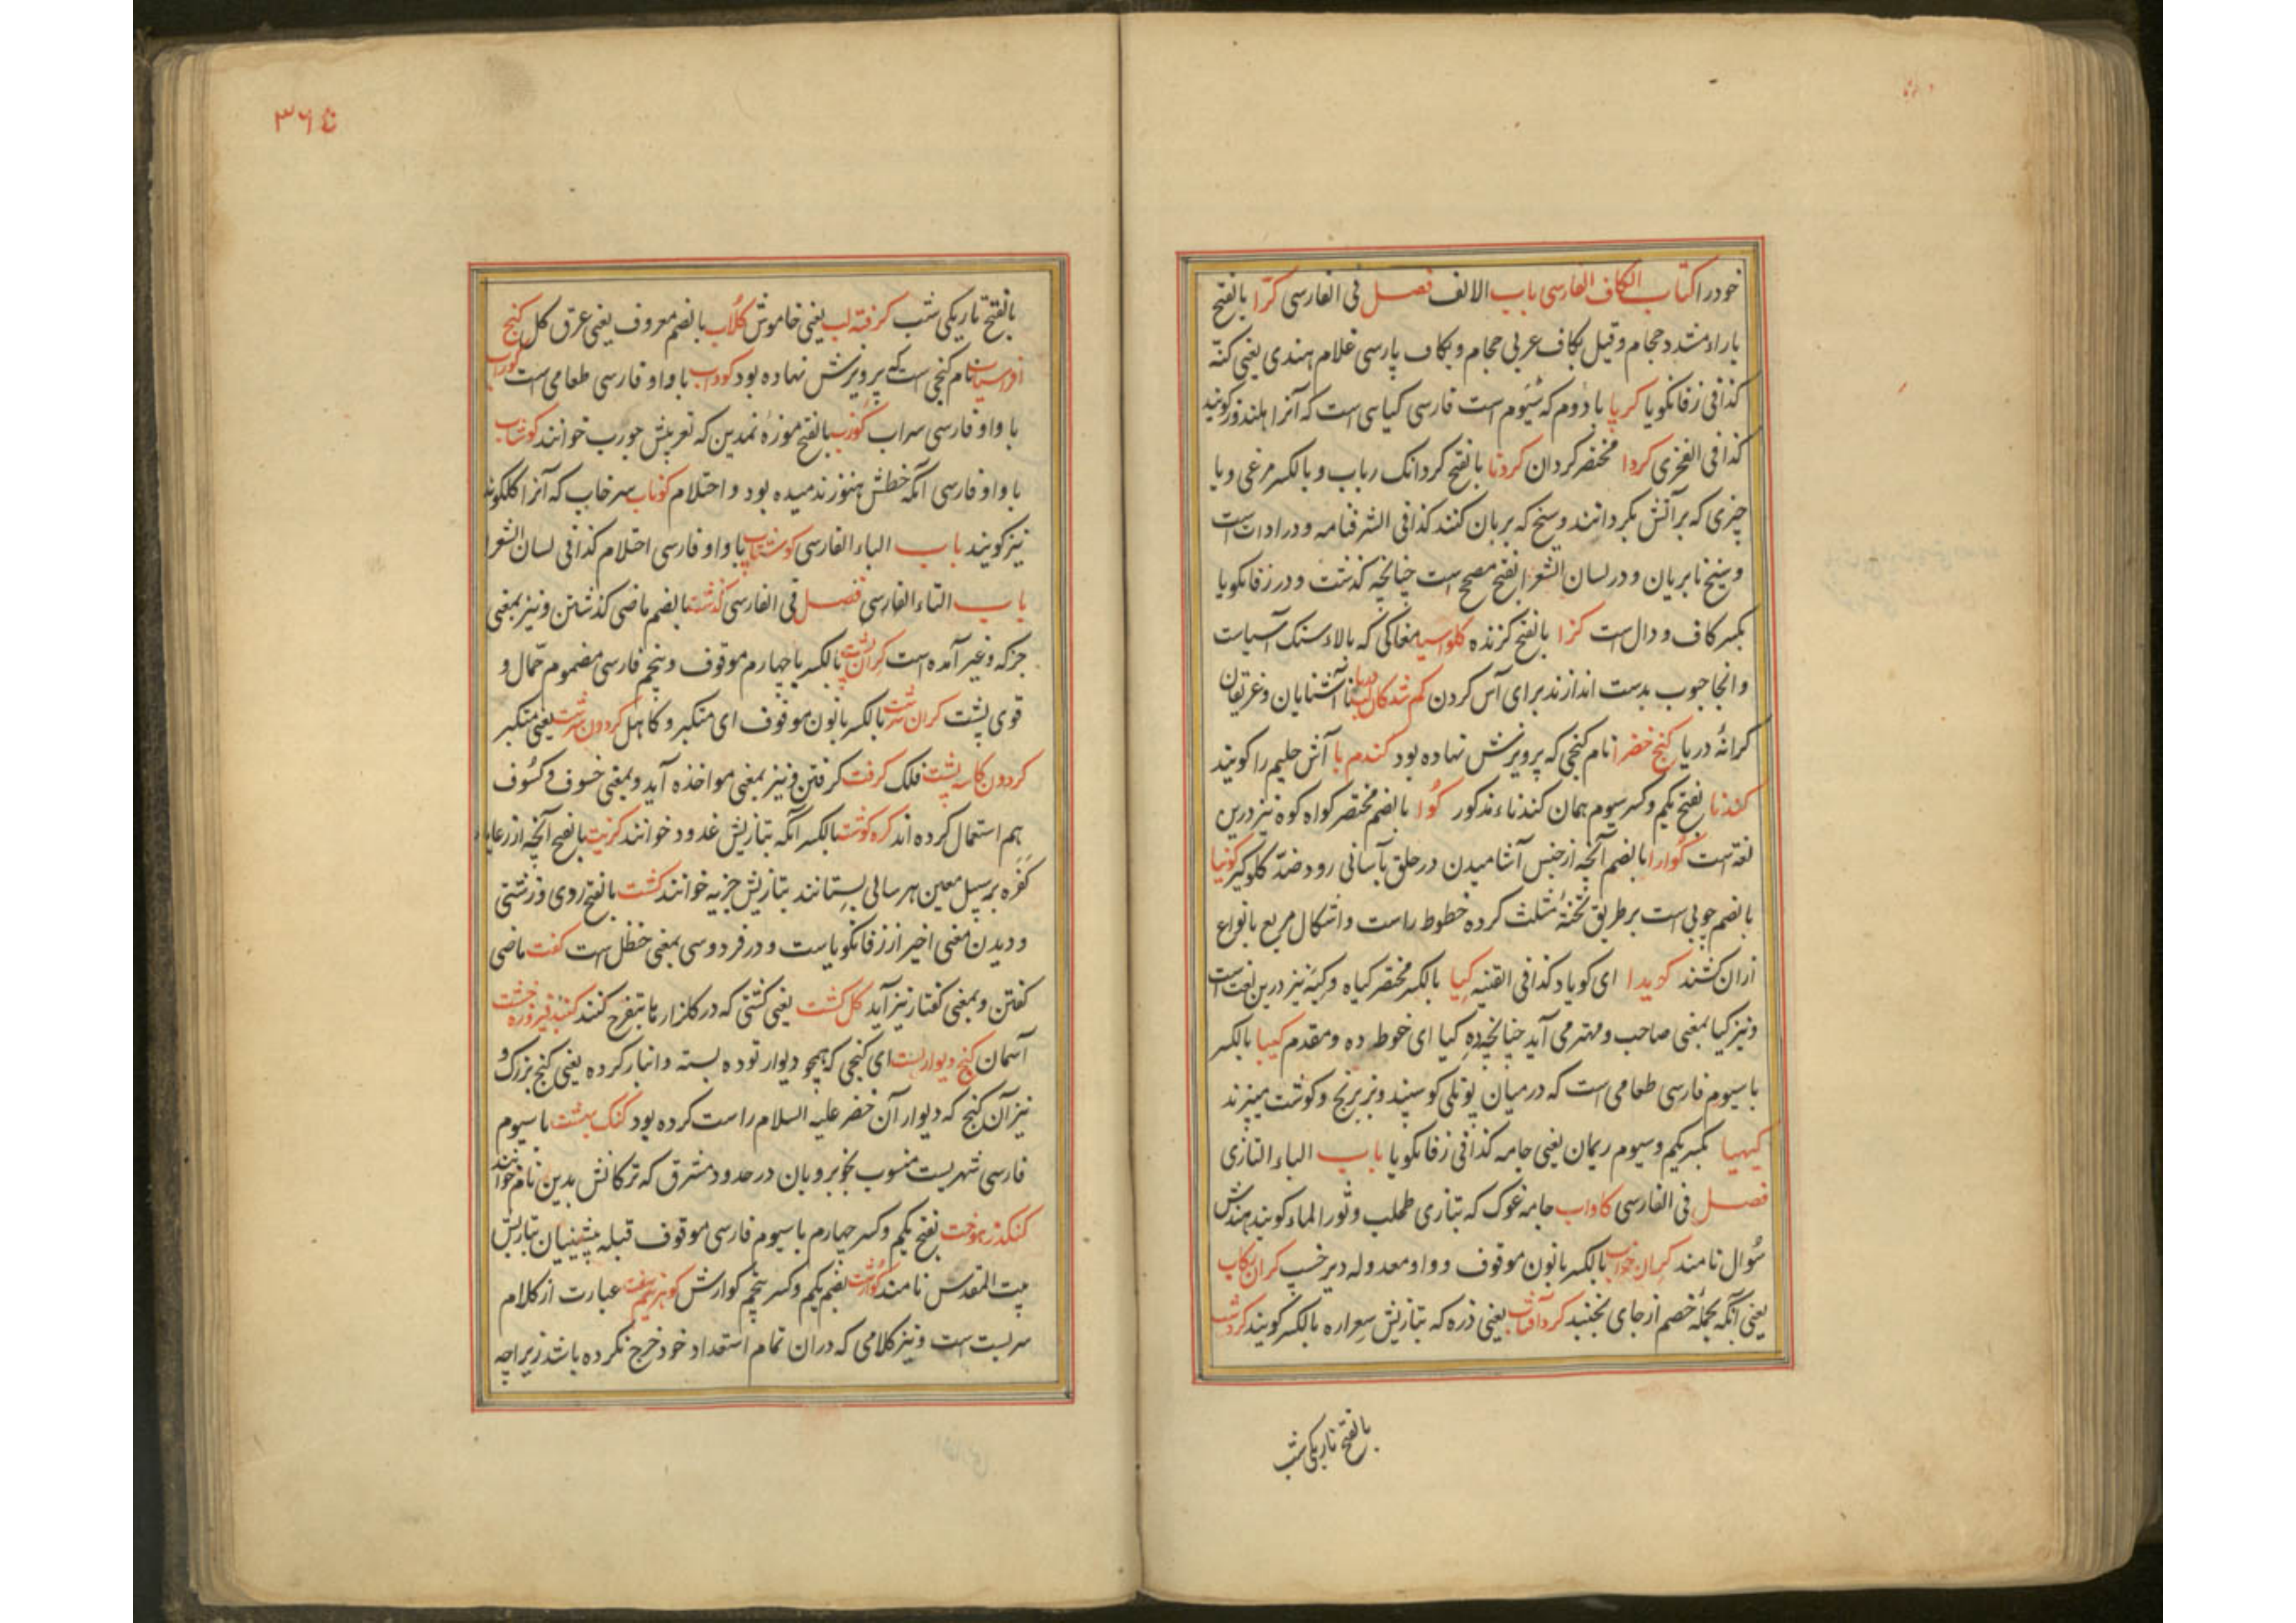 خودرا کتاب الکاف الفارسی باب الالف فصل فی الفارسی کرا بالفتح
باراء مشدد حجام وقیل بکاف عربی حجام و بکاف پارسی غلام هندی یعنی کته
کذا فی زفانکویا کرپا با دوم که سیوم است فارسی کیاسی است که آنرا هلندوز کویند
کذا فی الفخری کردا مختصر کردان کردنا بالفتح کردانک رباب و بالکسر مرغی و یا
چیزی که بر آتش بکردانند و سیخ که بریان کنند کذا فی الشرفنامه و در ادات است
و سیخ نا بریان و در لسان الشعرا بفتح مصحح است چنانچه کذشت و در زفانکویا
بکسر کاف و دال است کزا بالفتح کزنده کلو اسیا مغاکی که بالاء سنک آسیاست
و انجا حبوب بدست اندازند برای آس کردن کم شدکان لب دریا نا آشنایان و غریقان
کرانهٔ دریا کنج خضرا نام کنجی که پرویزش نهاده بود کندم با آش حلیم را کویند
کندنا بفتح یکم و کسر سیوم همان کندناء مذکور کوا بالضم مختصر کواه کوه نیز درین
لغة است کوارا بالضم آنچه از جنس آشامیدن در حلق بآسانی رود ضد کلوکیر کونیا
بالضم چوبی است بر طریق تختهٔ مثلث کرده خطوط راست و اشکال مربع بانواع
ازان کشند کویدا ای کویاد کذا فی القنیه کیا بالکسر مختصر کیاه و کیه نیز درین لغت است
و نیز کیا بمعنی صاحب و مهتر می آید چنانچه ده کیا ای خوط ده و مقدم کیپا بالکسر
با سیوم فارسی طعامی است که در میان پوتلی کوسپند و بز برنج و کوشت میپزند
کیهیا بکسر یکم و سیوم ریمان یعنی جامه کذا فی زفانکویا باب الباء التازی
فصل فی الفارسی کاواب جامه غوک که بتازی طحلب و ثور الماء کویند هندش
سوال نامند کران خواب بالکسر بانون موقوف و واو معدوله دیر خسپ کران رکاب
یعنی آنکه بحمله خصم از جای نجنبد کرد آفتاب یعنی ذره که بتازیش سعراره بالکسر کویند کرد شب
بالفتح تاریکی شب
٣٦٤
بالفتح تاریکی شب کرفته لب یعنی خاموش کلاب بالضم معروف یعنی عرق کل کنج
افراسیاب نام کنجی است که پرویزش نهاده بود کوداب با واو فارسی طعامی است کوراب
با واو فارسی سراب کورب بالفتح موزهٔ نمدین که تعریبش جورب خوانند کوشاب
با واو فارسی آنکه خطش هنوز ندمیده بود و احتلام کوناب سرخاب که آنرا کلکونه
نیز کویند باب الباء الفارسی کوشتاپ با واو فارسی احتلام کذا فی لسان الشعرا
باب التاء الفارسی فصل فی الفارسی کذشت بالضم ماضی کذشتن و نیز بمعنی
جز که و غیر آمده است کران پشت بالکسر با چهارم موقوف و پنجم فارسی مضموم حمال و
قوی پشت کران سرشت بالکسر بانون موقوف ای متکبر و کاهل کردون سرشت یعنی متکبر
کردون کاسه پشت فلک کرفت کرفتن و نیز بمعنی مواخذه آید و بمعنی خسوف و کسوف
هم استعمال کرده اند کره کوشت بالکسر آنکه بتازیش غدود خوانند کزیت بالفتح آنچه از رعایاء
کفره بر سبیل معین هر سالی بستانند بتازیش جزیه خوانند کشت بالفتح ردی و زشتی
و دیدن معنی اخیر از زفانکویاست و در فردوسی بمعنی خظل است کفت ماضی
کفتن و بمعنی کفتار نیز آید کل کشت یعنی کشتی که در کلزارها بتفرج کنند کنبد فیروزه خشت
آسمان کنج دیوار بست ای کنجی که همچو دیوار توده بسته و انبار کرده یعنی کنج بزرک و
نیز آن کنج که دیوار آن خضر علیه السلام راست کرده بود کنک بهشت با سیوم
فارسی شهریست منسوب بخوبرویان در حدود مشرق که ترکانش بدین نام خوانند
کنکدز هوخت بفتح یکم و کسر چهارم با سیوم فارسی موقوف قبله پیشینیان بتازیش
بیت المقدس نامند کوارشت بضم یکم و کسر پنجم کوارش کوهر نیم سفت عبارت از کلام
سربست است و نیز کلامی که دران تمام استعداد خود خرج نکرده باشد زیراچه